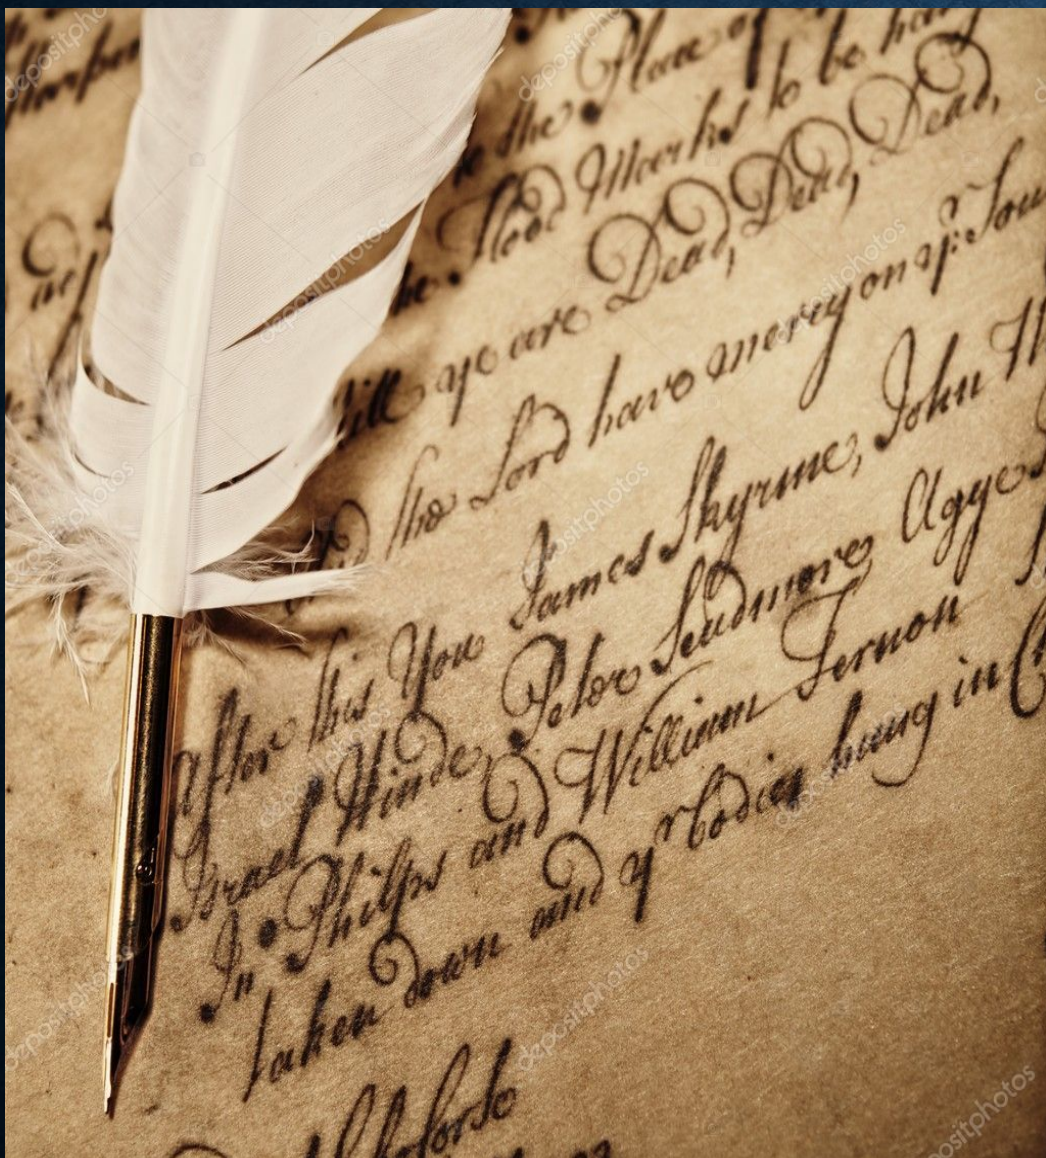 the Place of
the Flood Marks to be hang
till ye are Dead, Dead, Dead,
the Lord have mercy on yr. Sou
After this You James Skyrme, John
Israel Hinde, Peter Scudmore, Agge
In o Philps and William Fernon
taken down and yr bodies hung in C